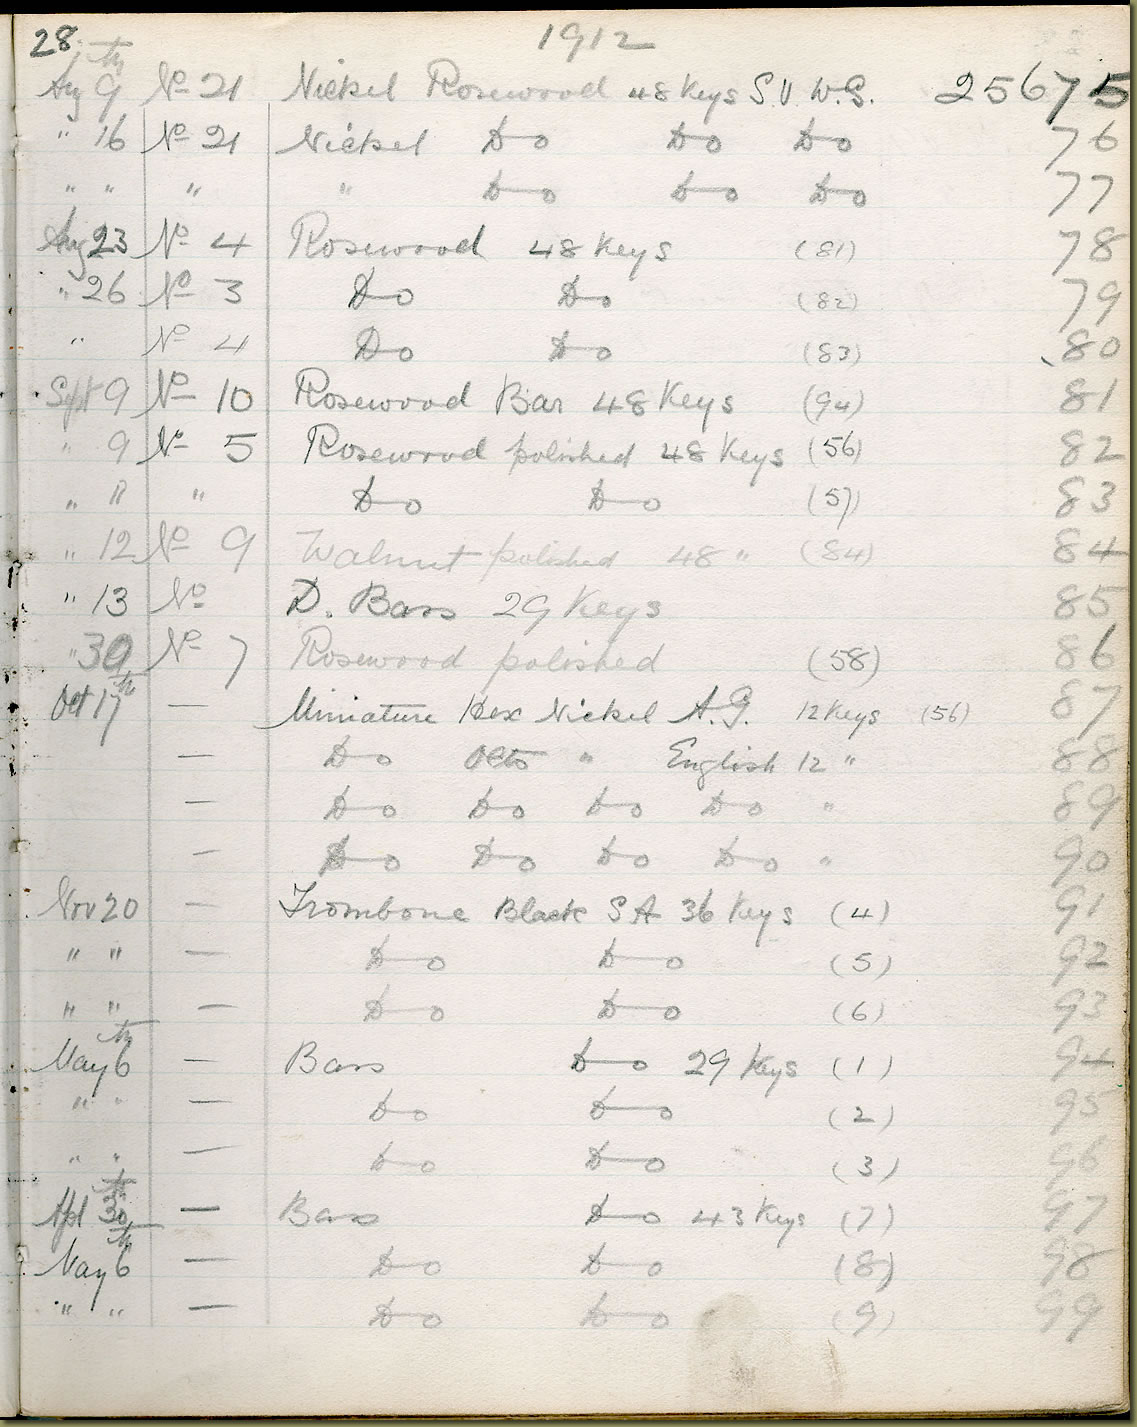 28 1912
Aug 9th No 21 Nickel Rosewood 48 Keys S.V.W.G. 25675
" 16 No 21 Nickel Do Do Do 76
" " " " Do Do Do 77
Aug 23 No 4 Rosewood 48 Keys (81) 78
" 26 No 3 Do Do (82) 79
" No 4 Do Do (83) 80
Sept 9 No 10 Rosewood Bar 48 Keys (94) 81
" 9 No 5 Rosewood polished 48 Keys (56) 82
" " " Do Do (57) 83
" 12 No 9 Walnut polished 48 " (84) 84
" 13 No D. Bass 29 Keys 85
" 30 No 7 Rosewood polished (58) 86
Oct 17th — Miniature Hex Nickel A.G. 12 Keys (56) 87
— Do Octo " English 12 " 88
— Do Do Do Do " 89
— Do Do Do Do " 90
Nov 20 — Trombone Black S A 36 Keys (4) 91
" " — Do Do (5) 92
" " — Do Do (6) 93
May 6th — Bass Do 29 Keys (1) 94
" " — Do Do (2) 95
" " — Do Do (3) 96
Apl 30th — Bass Do 43 Keys (7) 97
May 6th — Do Do (8) 98
" " — Do Do (9) 99